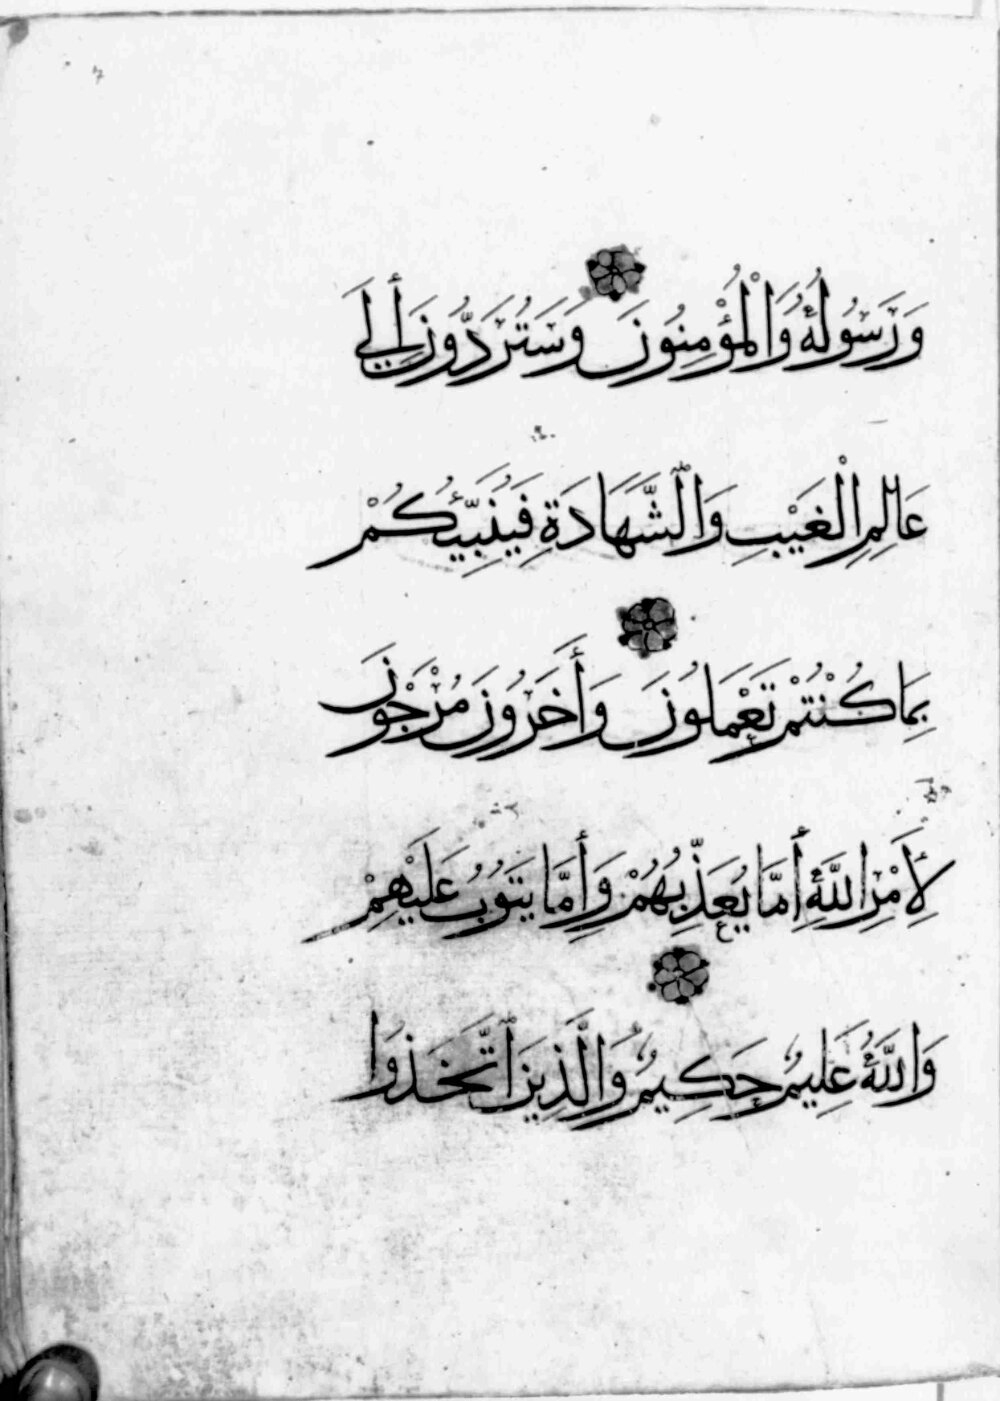 وَرَسُولُهُ وَالْمُؤْمِنُونَ وَسَتُرَدُّونَ إِلَى
عَالِمِ الْغَيْبِ وَالشَّهَادَةِ فَيُنَبِّئُكُمْ
بِمَا كُنْتُمْ تَعْمَلُونَ وَأَخَرُونَ مُرْجَوْنَ
لِأَمْرِ اللَّهِ إِمَّا يُعَذِّبُهُمْ وَإِمَّا يَتُوبُ عَلَيْهِمْ
وَاللَّهُ عَلِيمٌ حَكِيمٌ وَالَّذِينَ اتَّخَذُوا